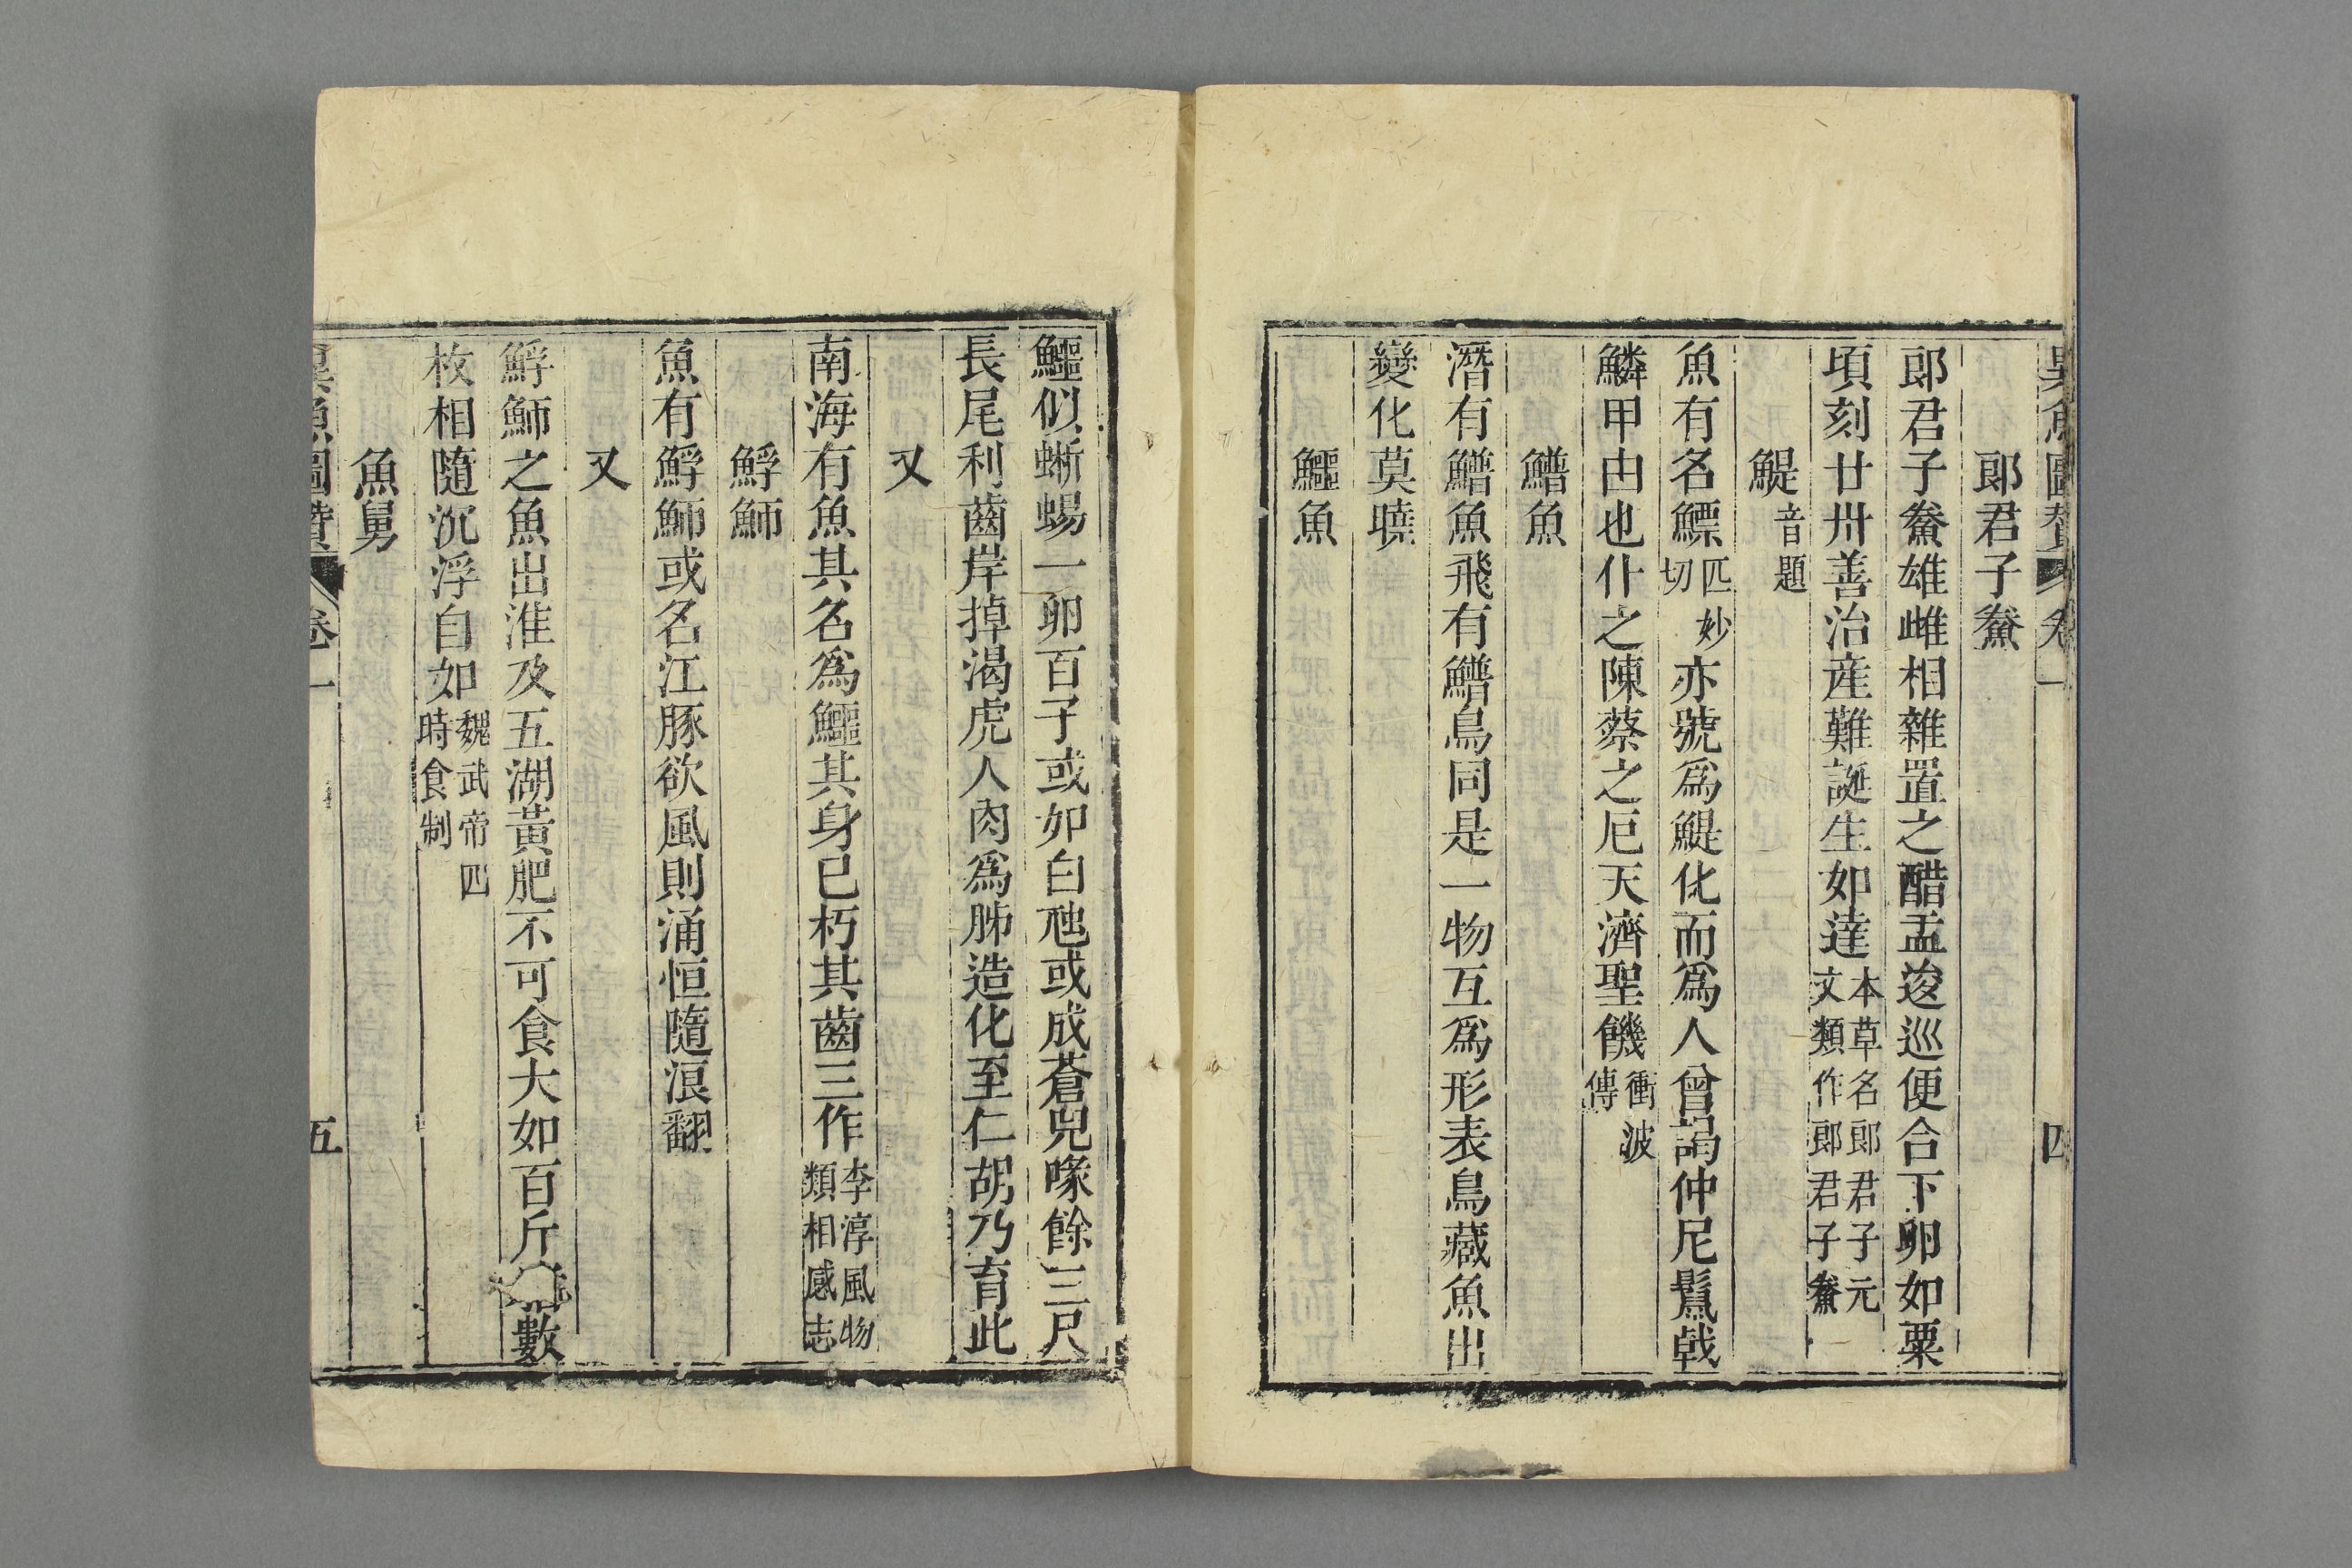 異魚圖贊 卷一 四
郎君子鮝
郎君子鮝雄雌相雜置之醋盂逡巡便合下卵如粟
頃刻廿卅善治産難誕生如達本草名郎君子元文類作郎君子鮝
鯷音題
魚有名鰾匹妙切亦號爲鯷化而爲人曾謁仲尼鬚戟
鱗甲由也仆之陳蔡之厄天濟聖饑衝波傳
鱛魚
潛有鱛魚飛有鱛鳥同是一物互爲形表鳥藏魚出
變化莫曉
鱷魚
鱷似蜥蜴一卵百子或如白虵或成蒼兕喙餘三尺
長尾利齒岸掉渴虎人肉爲胏造化至仁胡乃育此
又
南海有魚其名爲鱷其身已朽其齒三作李淳風物類相感志
䱐魳
魚有䱐魳或名江豚欲風則涌恒隨浪翻
又
䱐魳之魚出淮及五湖黃肥不可食大如百斤數
枚相隨沉浮自如魏武帝四時食制
魚舅
異魚圖贊 卷一 五